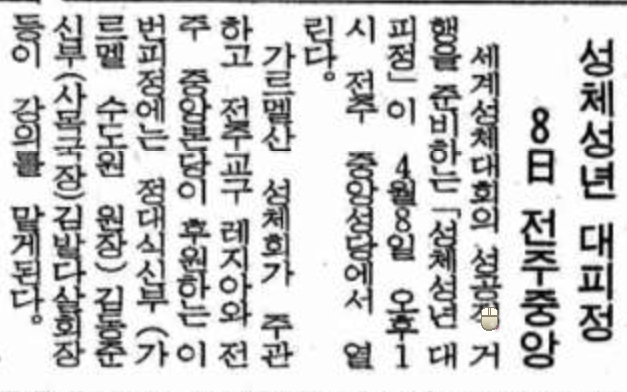 성체성년 대피정
8日 전주중앙
세계성체대회의 성공적 거
행을 준비하는「성체성년 대
피정」이 4월8일 오후1
시 전주 중앙성당에서 열
린다。
가르멜산 성체회가 주관
하고 전주교구 레지아와 전
주 중앙본당이 후원하는 이
번피정에는 정대식신부(가
르멜 수도원 원장) 김종준
신부(사목국장)김발다살회장
등이 강의를 맡게된다。